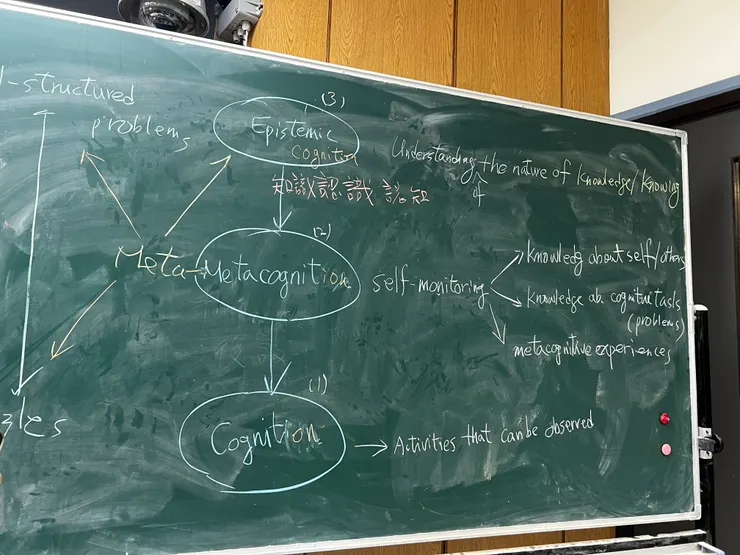 l-structured
problems
(3)
Epistemic
cognition
Understanding the nature of knowledge/knowing
of
知識認識 認知
(2)
Meta-Metacognition
self-monitoring
knowledg about self/others
knowledge ab. cognitive tasks
(problems)
metacognitive experiences
(1)
zles
Cognition
Activities that can be observed